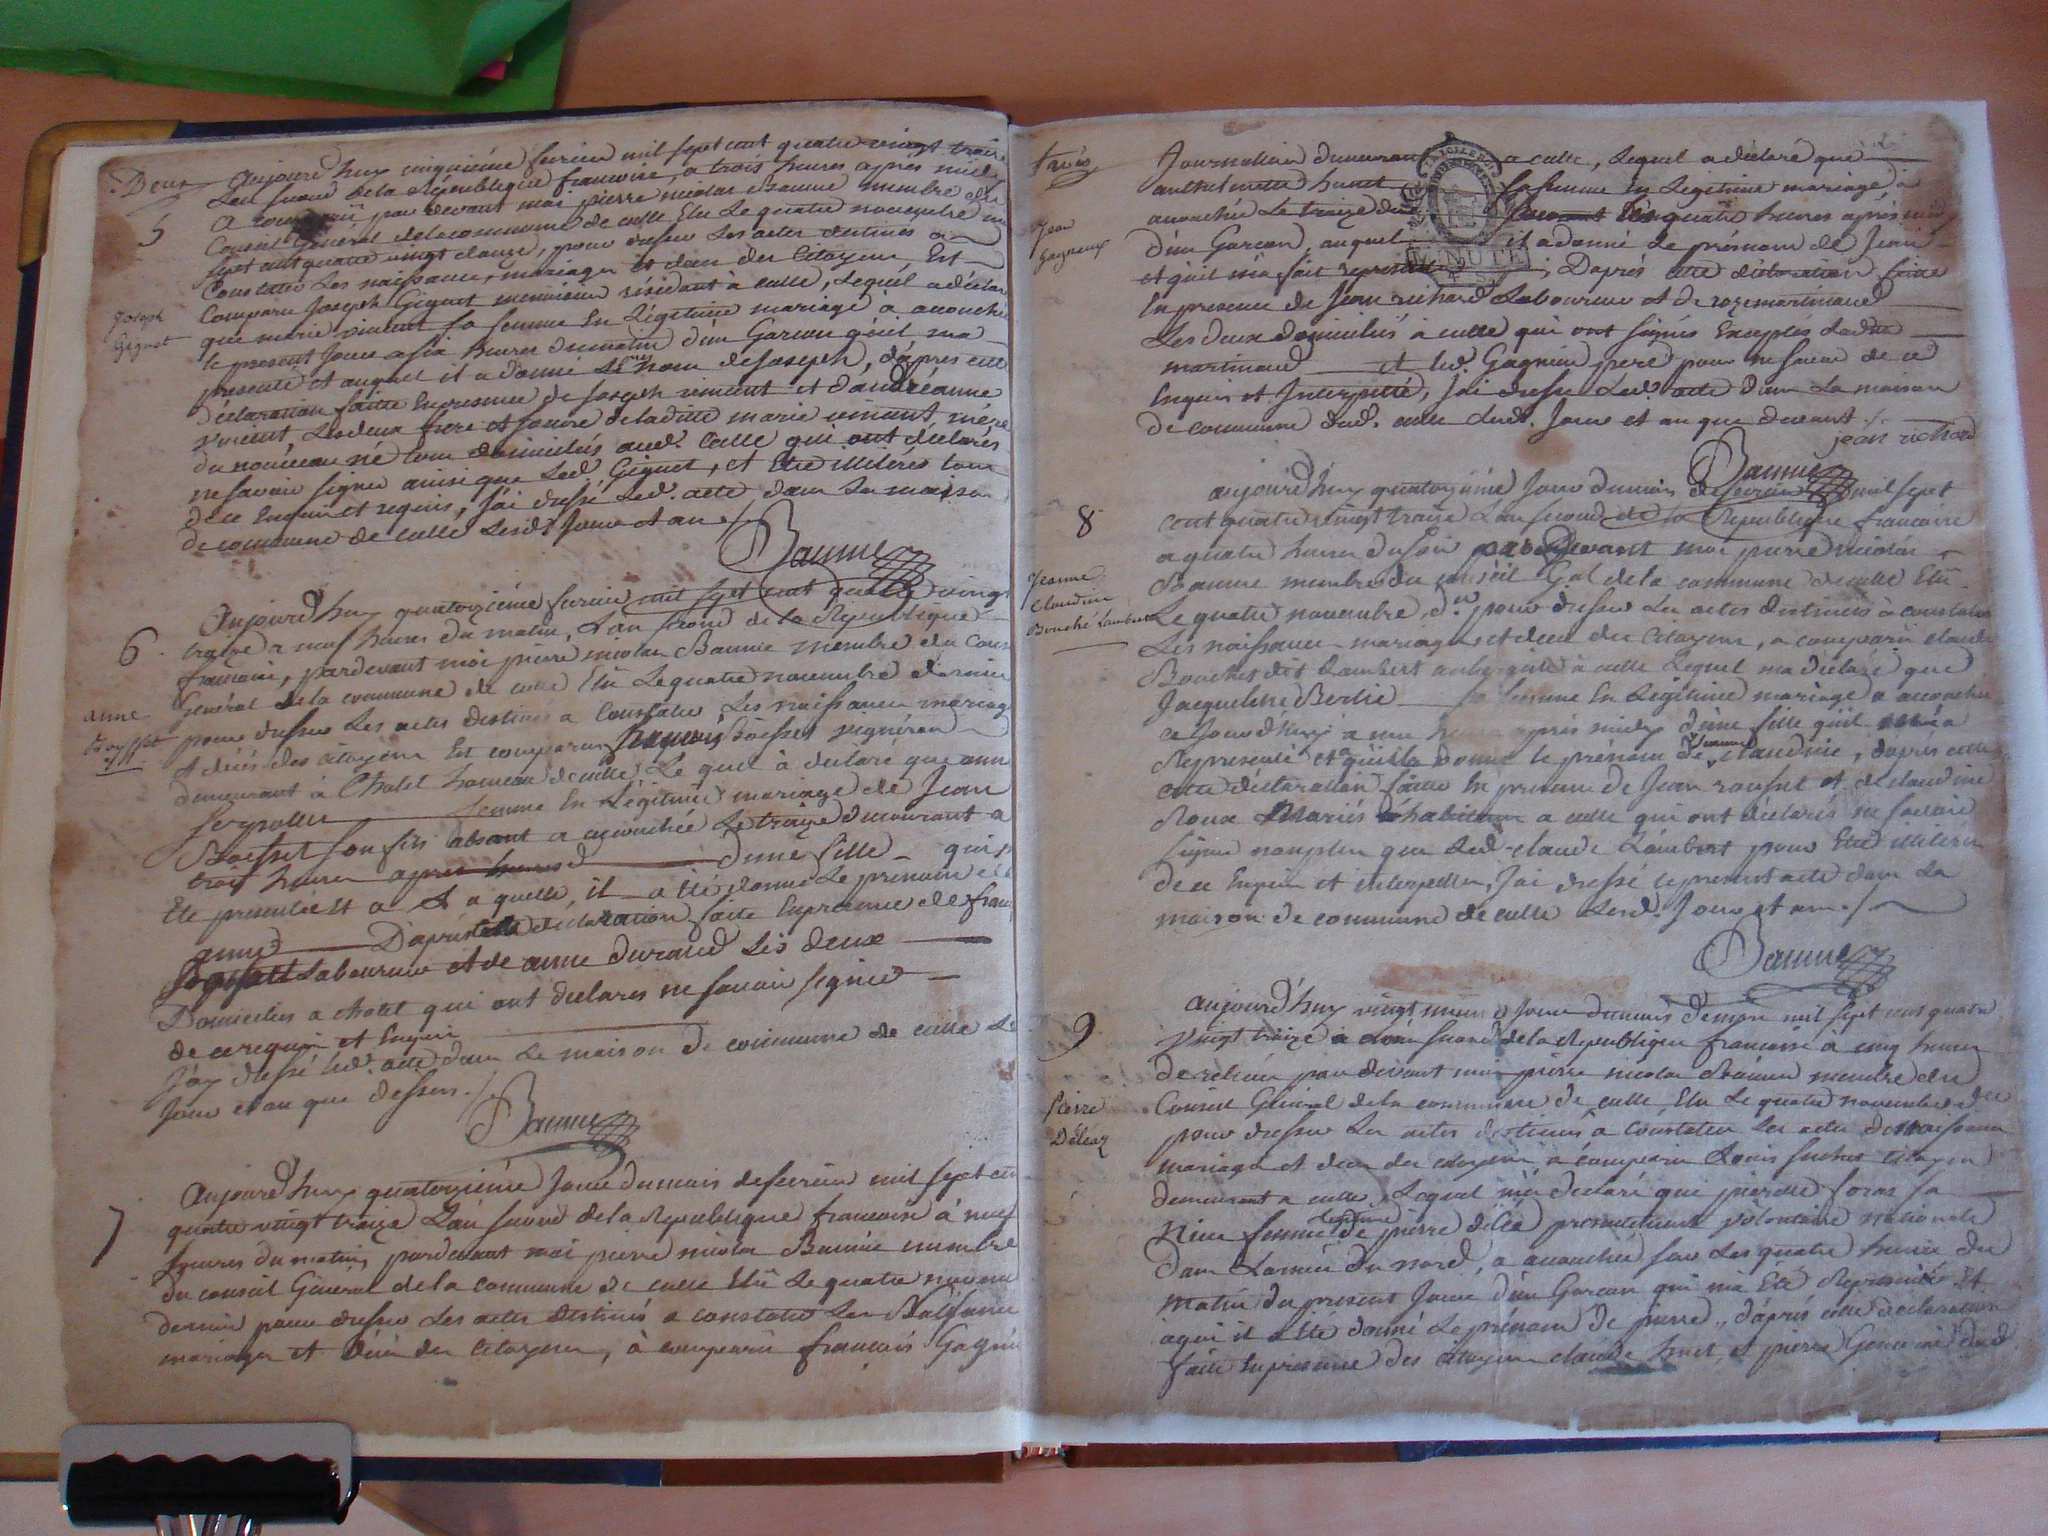 Deux
Aujourd'huy cinquiéme fevrier mil sept cent quatre vingt traize
L'an second de la République francoise, a trois heures après midy
par devant moi pierre nicolas Baume membre du
Conseil Général de la commune de culle Elu Le quatre novembre mil
5
sept cent quatre vingt douze, pour dresser Les actes destinés a
Constater Les naissances, mariages et deces des Citoyens, Est
Comparu Joseph Giguet menuisier résidant à culle, Lequel a déclaré
Joseph
Giguet
que marie vincent sa femme En Légitime mariage a accouché
le present Jour a six heures du matin d'un Garcon qu'il ma
presenté et auquel il a donné Le prenom de Joseph, d'après cette
déclaration faitte En presence de Joseph vincent et d'andréanne
vincent, Les deux frere et soeure de laditte marie vincent, mère
du nouveau né tous domiciliés aud. Culle qui ont déclarés
ne savoir signer ainsi que Led. Giguet, et Etre illiterés tous
de ce Enquis et requis, J'ai dressé Led. acte dans La maison
de commune de culle Lesd. Jour et an ./.
Baume
Aujourd'huy quatorziéme fevrier mil sept cent quatre vingt
6.
traize a neuf heures du matin, L'an second de la République
francoise, pardevant moi pierre nicolas Baume membre du Conseil
Général de la commune de culle Elu Le quatre novembre dernier
anne
pour dresser Les actes destinés a Constater Les naissances mariages
et décés des citoyens Est comparu françois Boisset vigneron
demeurant à Chatel hameau de culle, Le quel à déclaré que anne
femme En Légitime mariage de Jean
Boisset son fils absent a accouchée Le traize du courant a
trois heures après d'une fille qui
Ete presentée Et a Laquelle il a été donné Le prenom de
anne D'après cette déclaration faite En presence de
Laboureur et de anne durand Les deux
Domiciliés a chatel qui ont déclarés ne savoir signer
de ce requis et Enquis
J'ay dressé led. acte dans La maison de commune de culle Le
Jour et an que dessus ./.
Baume
7
Aujourd'huy quatorziéme Jour du mois de fevrier mil sept cent
quatre vingt traize L'an second de la République francoise à neuf
heures du matin, pardevant moi pierre nicolas Baume membre
du conseil Général de la commune de culle Elu Le quatre novembre
dernier pour dresser Les actes destinés a constater Les Naissances
mariages et Décès des Citoyens, à comparu françois Gagnieu
trois
Journallier demeurant a culle, Lequel a déclaré que
anthelmette hunet sa femme En Légitime mariage à
Jean
accouchée Le traize du courant à quatre heures après midy
d'un Garcon, auquel il a donné Le prénom de Jean
et qu'il m'a fait representer, D'après cette déclaration faite
En presence de Jean richard Laboureur et de roze martinaud
Les deux domiciliés à culle qui ont signés Exceptés Laditte
martinaud et led. Gagnieu pere pour ne savoir de ce
Enquis et Interpellé, J'ai dressé Led. acte dans La maison
de commune dud. culle Lesd. Jour et an que devant ./.
jean richard
Baume
8
aujourd'huy quatorziéme Jour du mois de fevrier mil sept
cent quatre vingt traize L'an second de la République francoise
a quatre heures du soir pardevant moi pierre nicolas
Baume membre du conseil Gal de la commune de culle Elu
Jeanne
Claudine
Bouché Lambert
Le quatre novembre d.er pour dresser Les actes destinés à constater
Les naissances mariages et deces des Citoyens, a comparu claude
Bouchet dit Lambert aubergiste à culle Lequel ma déclaré que
Jacqueline Berlie sa femme En Légitime mariage a accouchée
ce Jourd'huy a une heure après midy d'une fille qu'il m'a
Representé et qu'il a donné le prénom de Jeanne claudine, d'après cette
cette déclaration faitte En presence de Jean rousset et de claudine
Roux Mariés habitans a culle qui ont déclarés ne savoir
signer non plus que Led. claude Lambert pour Etre illiterés
de ce Enquis et interpellés, J'ai dressé le present acte dans La
maison de commune de culle Lesd. Jour et an ./.
Baume
9
aujourd'huy vingt Jour du mois de mars mil sept cent quatre
vingt traize L'an second de la République francoise à cinq heures
de relevée par devant moi pierre nicolas Baume membre du
Pierre
Déléaz
Conseil Général de la commune de culle, Elu Le quatre novembre der
pour dresser Les actes destinés a Constater Les actes de naissances
mariages et deces des citoyens a comparu Louis
demeurant a culle, Lequel m'a declaré que pierrette foras sa
Niece femme légitime de pierre déléa presentement volontaire nationale
dans L'armée du nord, a accouchée sur Les quatre heures du
matin du present Jour d'un Garcon qui m'a Eté Representé Et
a qui il a Eté donné Le prénom de pierre, d'après cette déclaration
faite En presence des citoyens claude hunet, et pierre